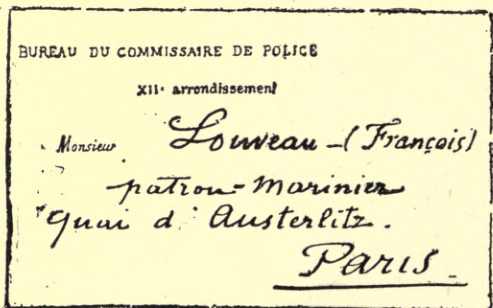 BUREAU DU COMMISSAIRE DE POLICE
XIIe arrondissement
Monsieur Louveau - (François)
patron-Marinier
Quai d'Austerlitz.
Paris.